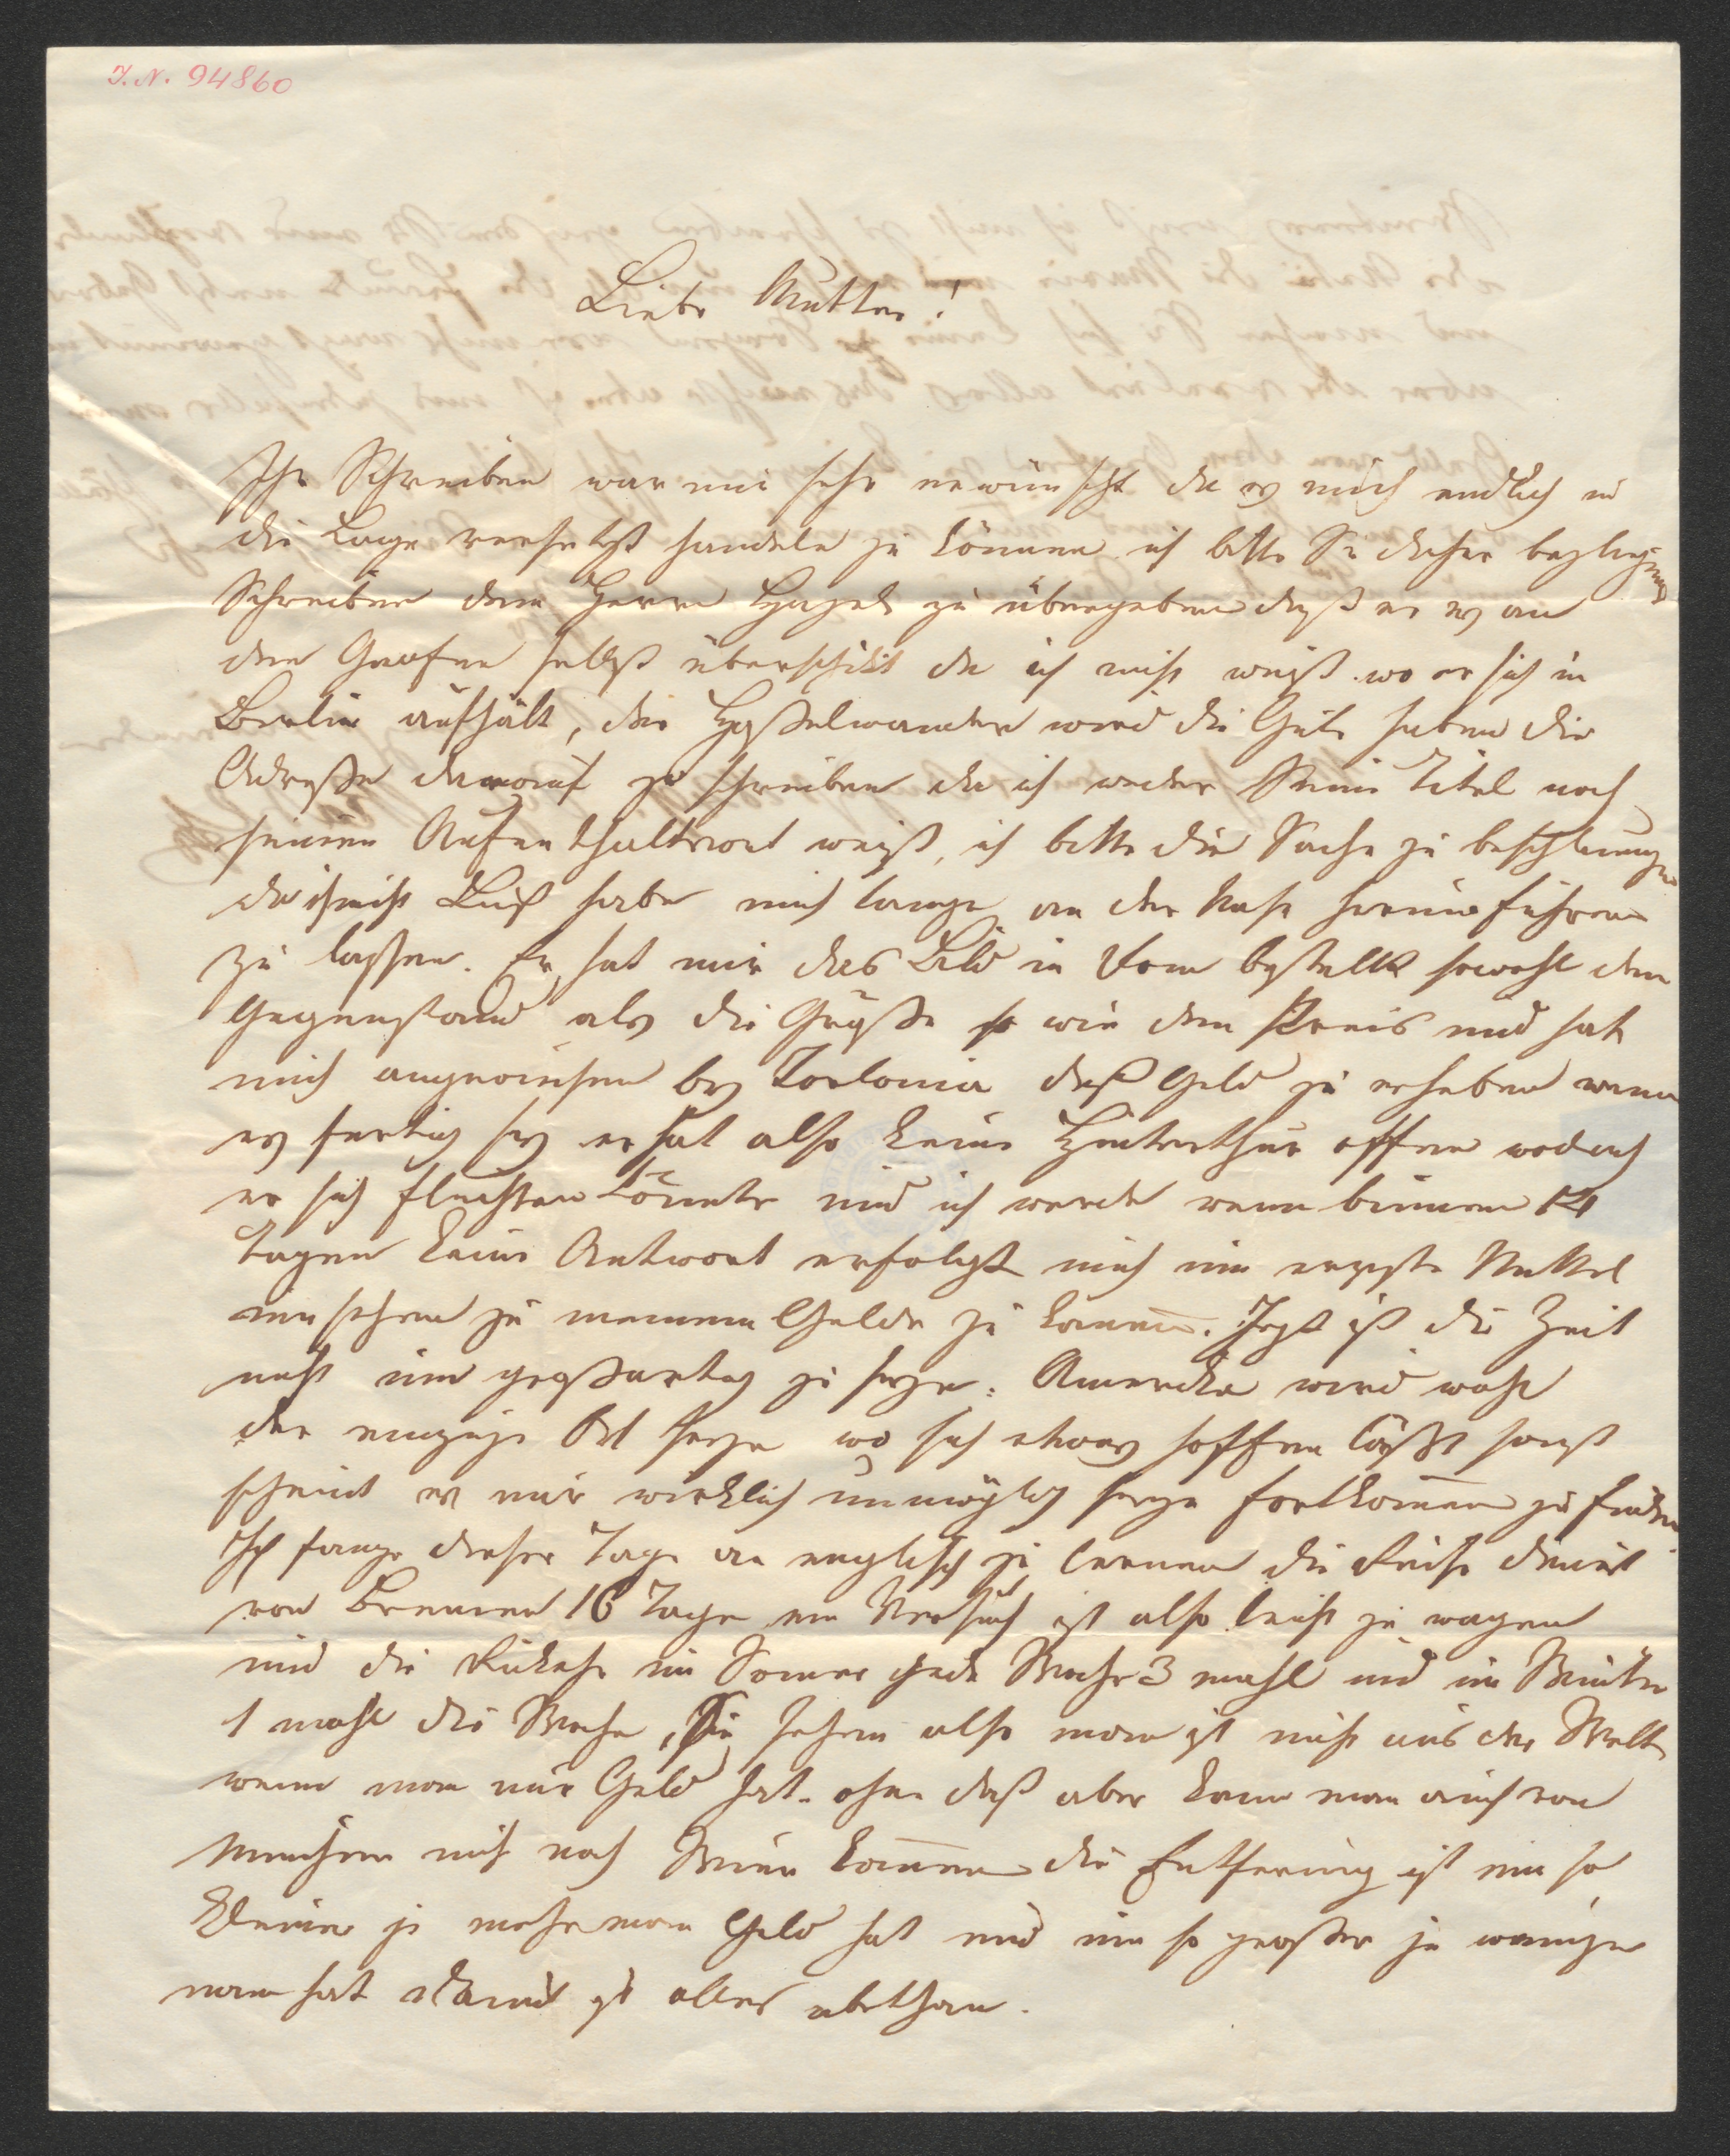 I. N. 94860
Liebe Mutter!
Ihr Schreiben war mir sehr erwünscht da es mich endlich in
die Lage versetzt handeln zu können ich bitte Sie daher
Schreiben dem Herrn zu übergeben daß er es an
den Grafen selbst überschikt da ich nicht weiß wo er sich in
Berlin aufhält, die Haßelwander wird die Güte haben die
Adreße darauf zu schreiben da ich weder Seine Titel noch
seinen Aufenthaltsort weiß, ich bitte die Sache zu beschleunigen
da ich nicht Lust habe mich lange an der Nase herum führen
zu lassen. Er hat mir das Bild in Rom bestellt sowohl den
Gegenstand als die Größe so wie den Preis und hat
mich angewiesen bey Torlonia daß Geld zu erheben wenn
es fertig sey er hat also keine Hinterthür offen wodurch
er sich fluchten könnte und ich werde wenn binnen 14
Tagen keine Antwort erfolgt mich um ernste Mittel
umsehen zu meinem Gelde zu kommen. Jezt ist die Zeit
nicht um großartig zu seyn. Amerika wird wohl
der einzige Ort seyn wo sich etwas hoffen läßt sonst
scheint es mir wirklich unmöglich seyn fortkommen zu finden
Ich fange dieser Tage an englisch zu lernen die Reise dauert
von Bremen 16 Tage ein Versuch ist also leicht zu wagen
und die Rükehr im Somer jede Woche 3 mahl und im Winter
1 mahl die Woche, Sie sehen also man ist nicht aus der Welt
wenn man nur Geld hat. ohne daß aber kann man auch von
Munchen nicht nach Wien kommen die Entfernung ist um so
kleiner je mehr man Geld hat und um so großer je weniger
man hat damit ist alles abethan.